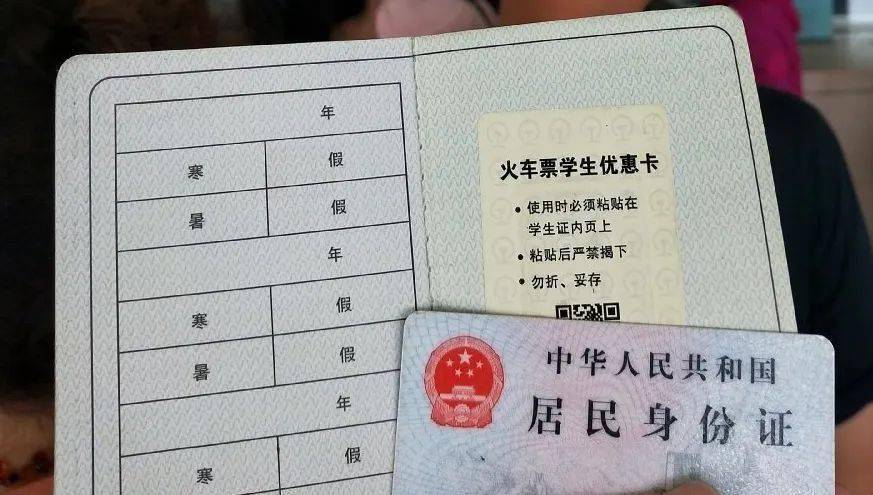 年
寒 假
暑 假
年
寒 假
暑 假
年
寒 假
火车票学生优惠卡
• 使用时必须粘贴在
学生证内页上
• 粘贴后严禁揭下
• 勿折、妥存
中华人民共和国
居民身份证